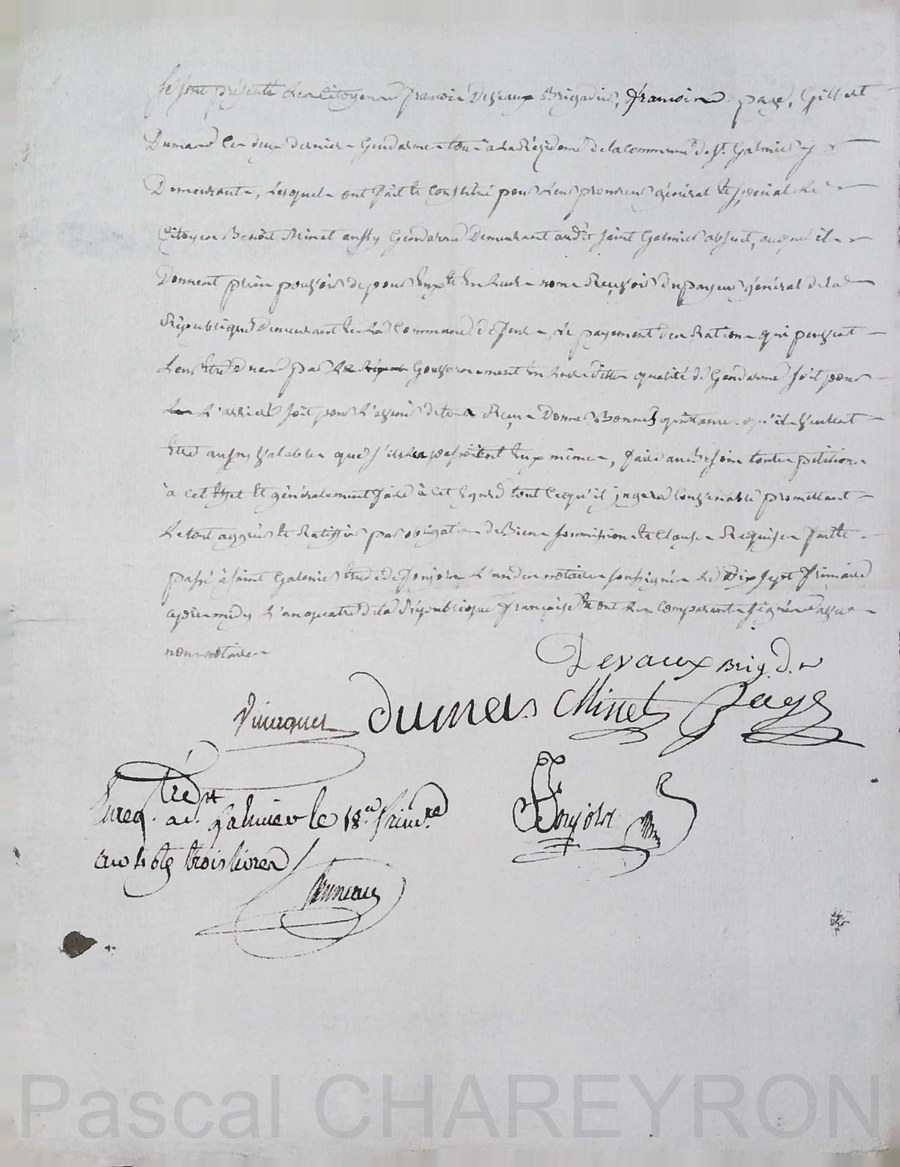 Se sont présenté les Citoyens francois Devaux Brigadier, francois page, Gilbert
Dumas Ces deux dernier Gendarme tous à la Résidence de la commune de St. Galmier y
Demeurant, Lesquels ont fait et Constitué pour leur procureur général et spécial Le
Citoyen Benoit Minet aussy Gendarme Demeurant audit saint Galmier absent, auquel il
Donnent plein pouvoir de pour Eux et En leurs noms Reçevoir du payeur général de la
République Demeurant En La Commune de, Le payement des Rations qui peuvent
Leur Etre dues par Le Gouvernement En leurditte qualité de Gendarme soit pour
L'arriéré soit pour L'avenir de tous Reçus Donner Bonnes quittances qu'il Veulent
Etre aussy Valables que s'ils les passoient Eux mêmes, faire au Besoin toutes petitions
à cet Effet Et généralement faire à cet Egard tout ce qu'il jugera Convenable promettant
Le tout aggréer et Ratiffier par obligation de Biens soumission et Clauses Requises faitte
passé à saint Galmier Etude de Ponjon L'un des notaires soussignés Le Dix sept frimaire
après midy L'an quatre de la République française Et ont Les Comparants signé avec
nous notaires
Devaux Brig.der
Dumas Minet page
Enreg. à St galmier le 18e. frim.re
an 4 trois livres
Bruneau
Pascal CHAREYRON